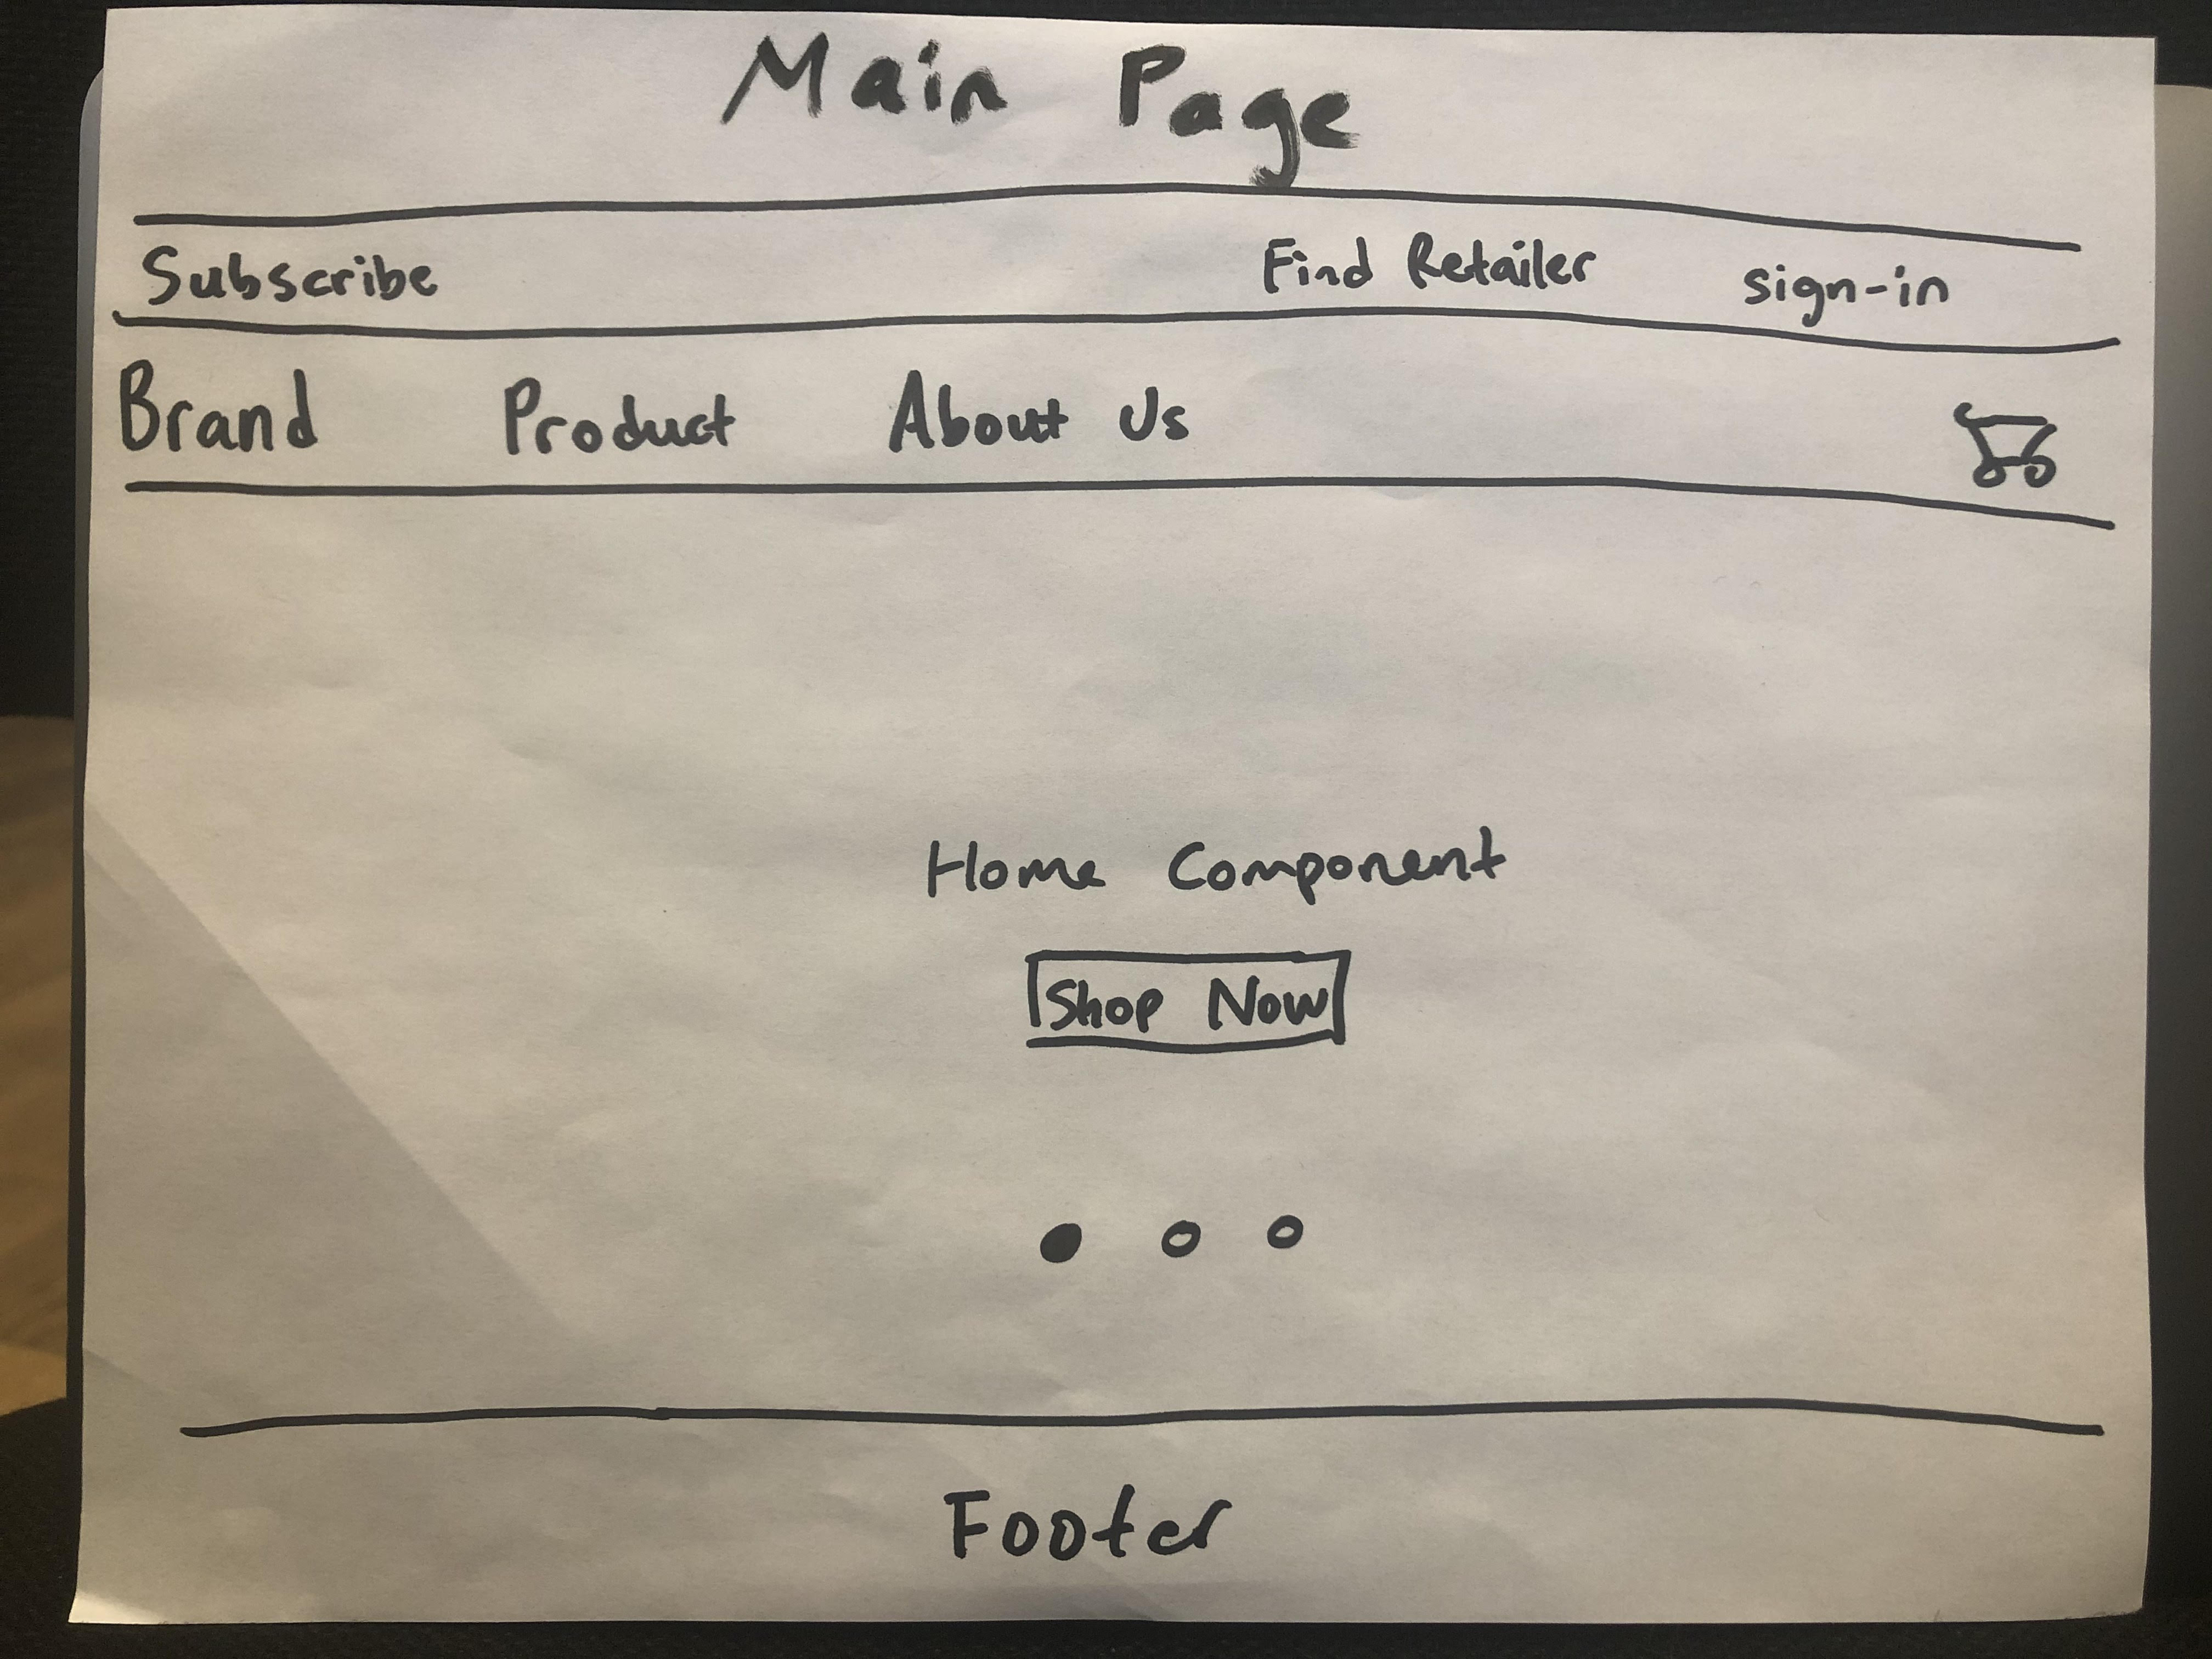 Main Page
Subscribe Find Retailer sign-in
Brand Product About Us
Home Component
Shop Now
Footer